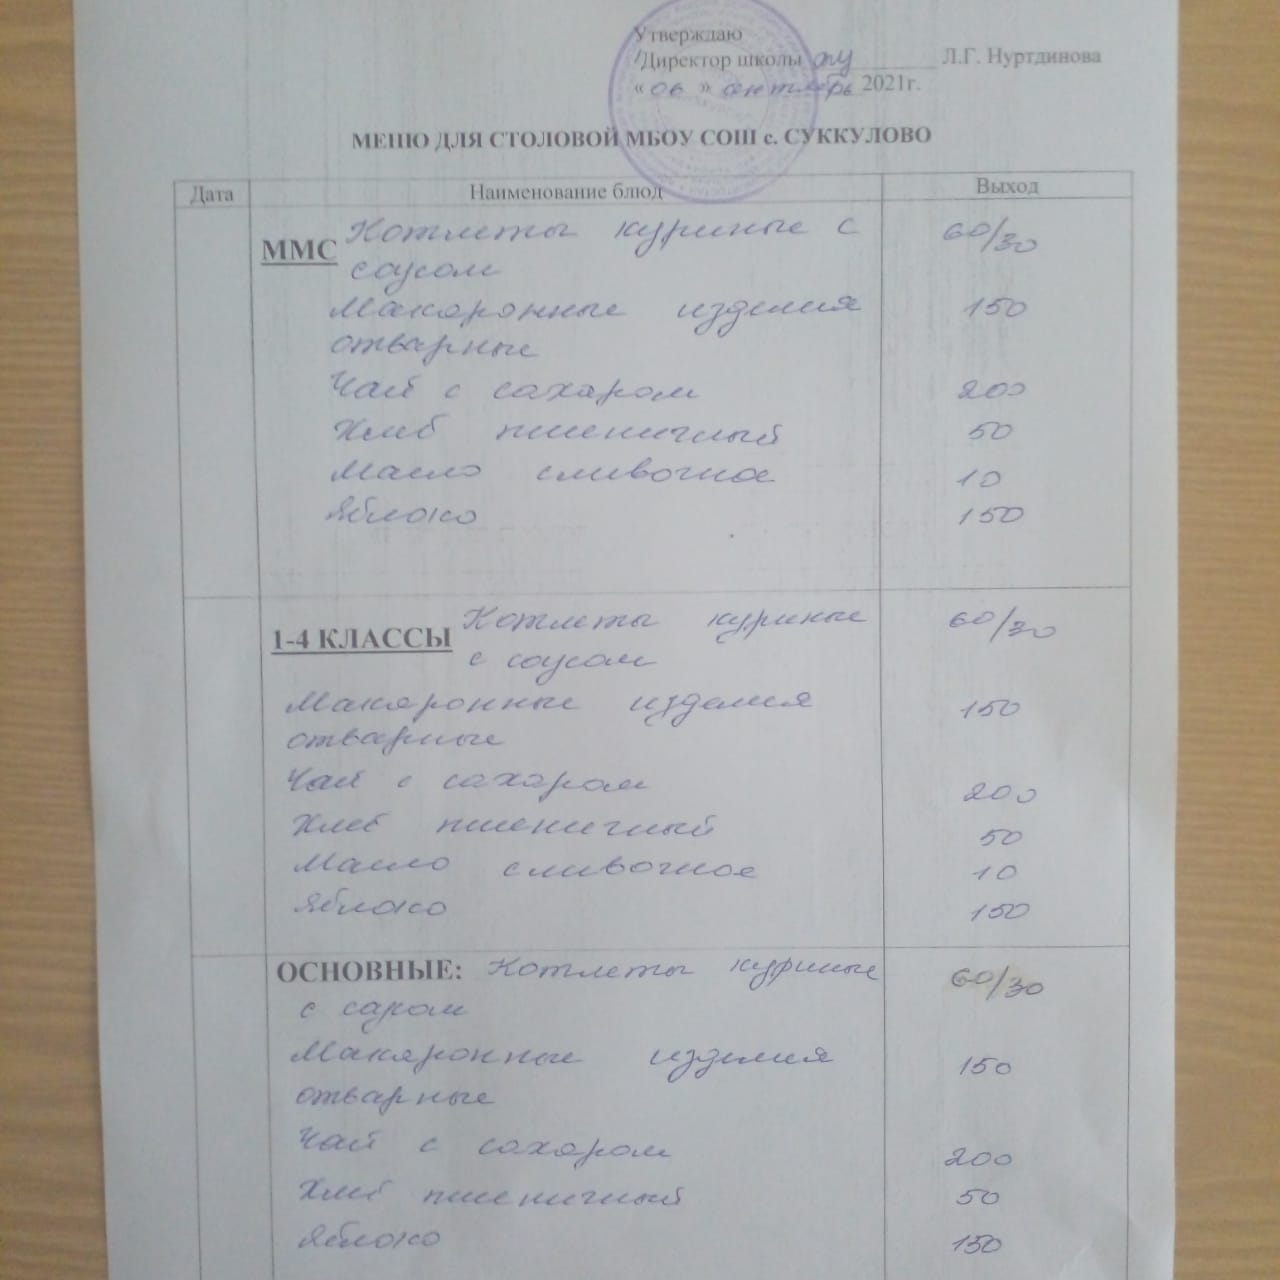 Утверждаю
Директор школы Л.Г. Нуртдинова
« 06 » сентябрь 2021г.
МЕНЮ ДЛЯ СТОЛОВОЙ МБОУ СОШ с. СУККУЛОВО
Дата Наименование блюд Выход
ММС Котлеты куриные с 60/30
соусом
Макаронные изделия 150
отварные
Чай с сахаром 200
Хлеб пшеничный 50
Масло сливочное 10
Яблоко 150
1-4 КЛАССЫ Котлеты куриные 60/30
с соусом
Макаронные изделия 150
отварные
Чай с сахаром 200
Хлеб пшеничный 50
Масло сливочное 10
Яблоко 150
ОСНОВНЫЕ: Котлеты куриные 60/30
с саром
Макаронные изделия 150
отварные
Чай с сахаром 200
Хлеб пшеничный 50
Яблоко 150